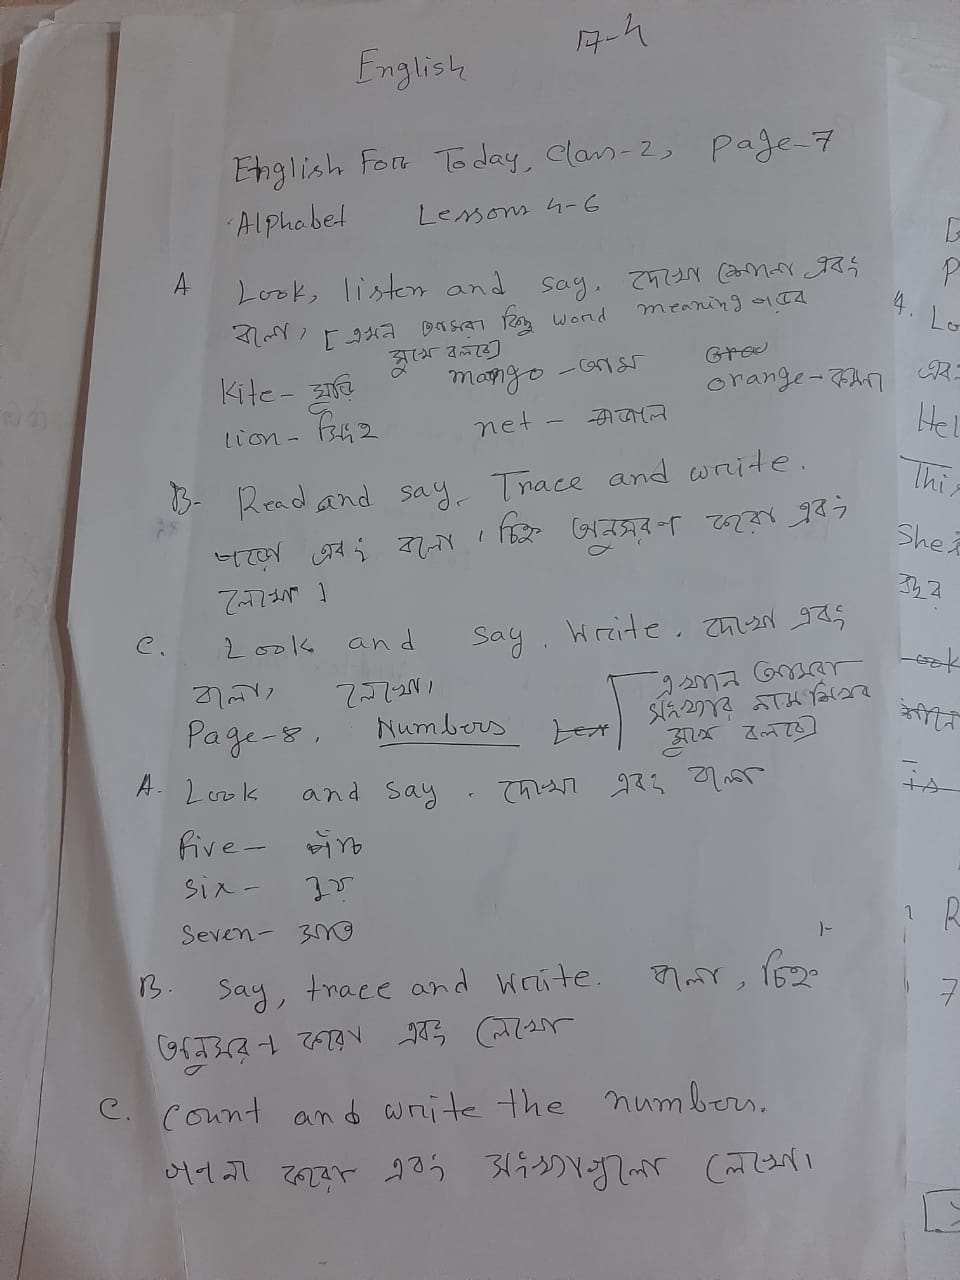 English
English For Today, Class-2, Page-7
Alphabet Lessons 4-6
A Look, listen and say. দেখো শোনো এবং
বলো, [এখন আমরা কিছু word meaning পরে
মুখে বলবো]
Kite- ঘুড়ি mango -আম orange- কমলা
lion- সিংহ net - জাল
B- Read and say. Trace and write.
পড়ো এবং বলো । চিহ্ন অনুসরণ করো এবং
লেখো ।
C. Look and say. Write. দেখো এবং
বলো, লেখো।
Page-8. Numbers [এখানে আমরা
সংখ্যার নাম শিখব
মুখে বলবো]
A. Look and say. দেখো এবং বলো
five- পাঁচ
six- ছয়
seven- সাত
B. say, trace and write. বলো, চিহ্ন
অনুসরণ করো এবং লেখো
C. count and write the numbers.
গণনা করো এবং সংখ্যাগুলো লেখো।
4. Lo
এবং
Hel
This
She is
R
7